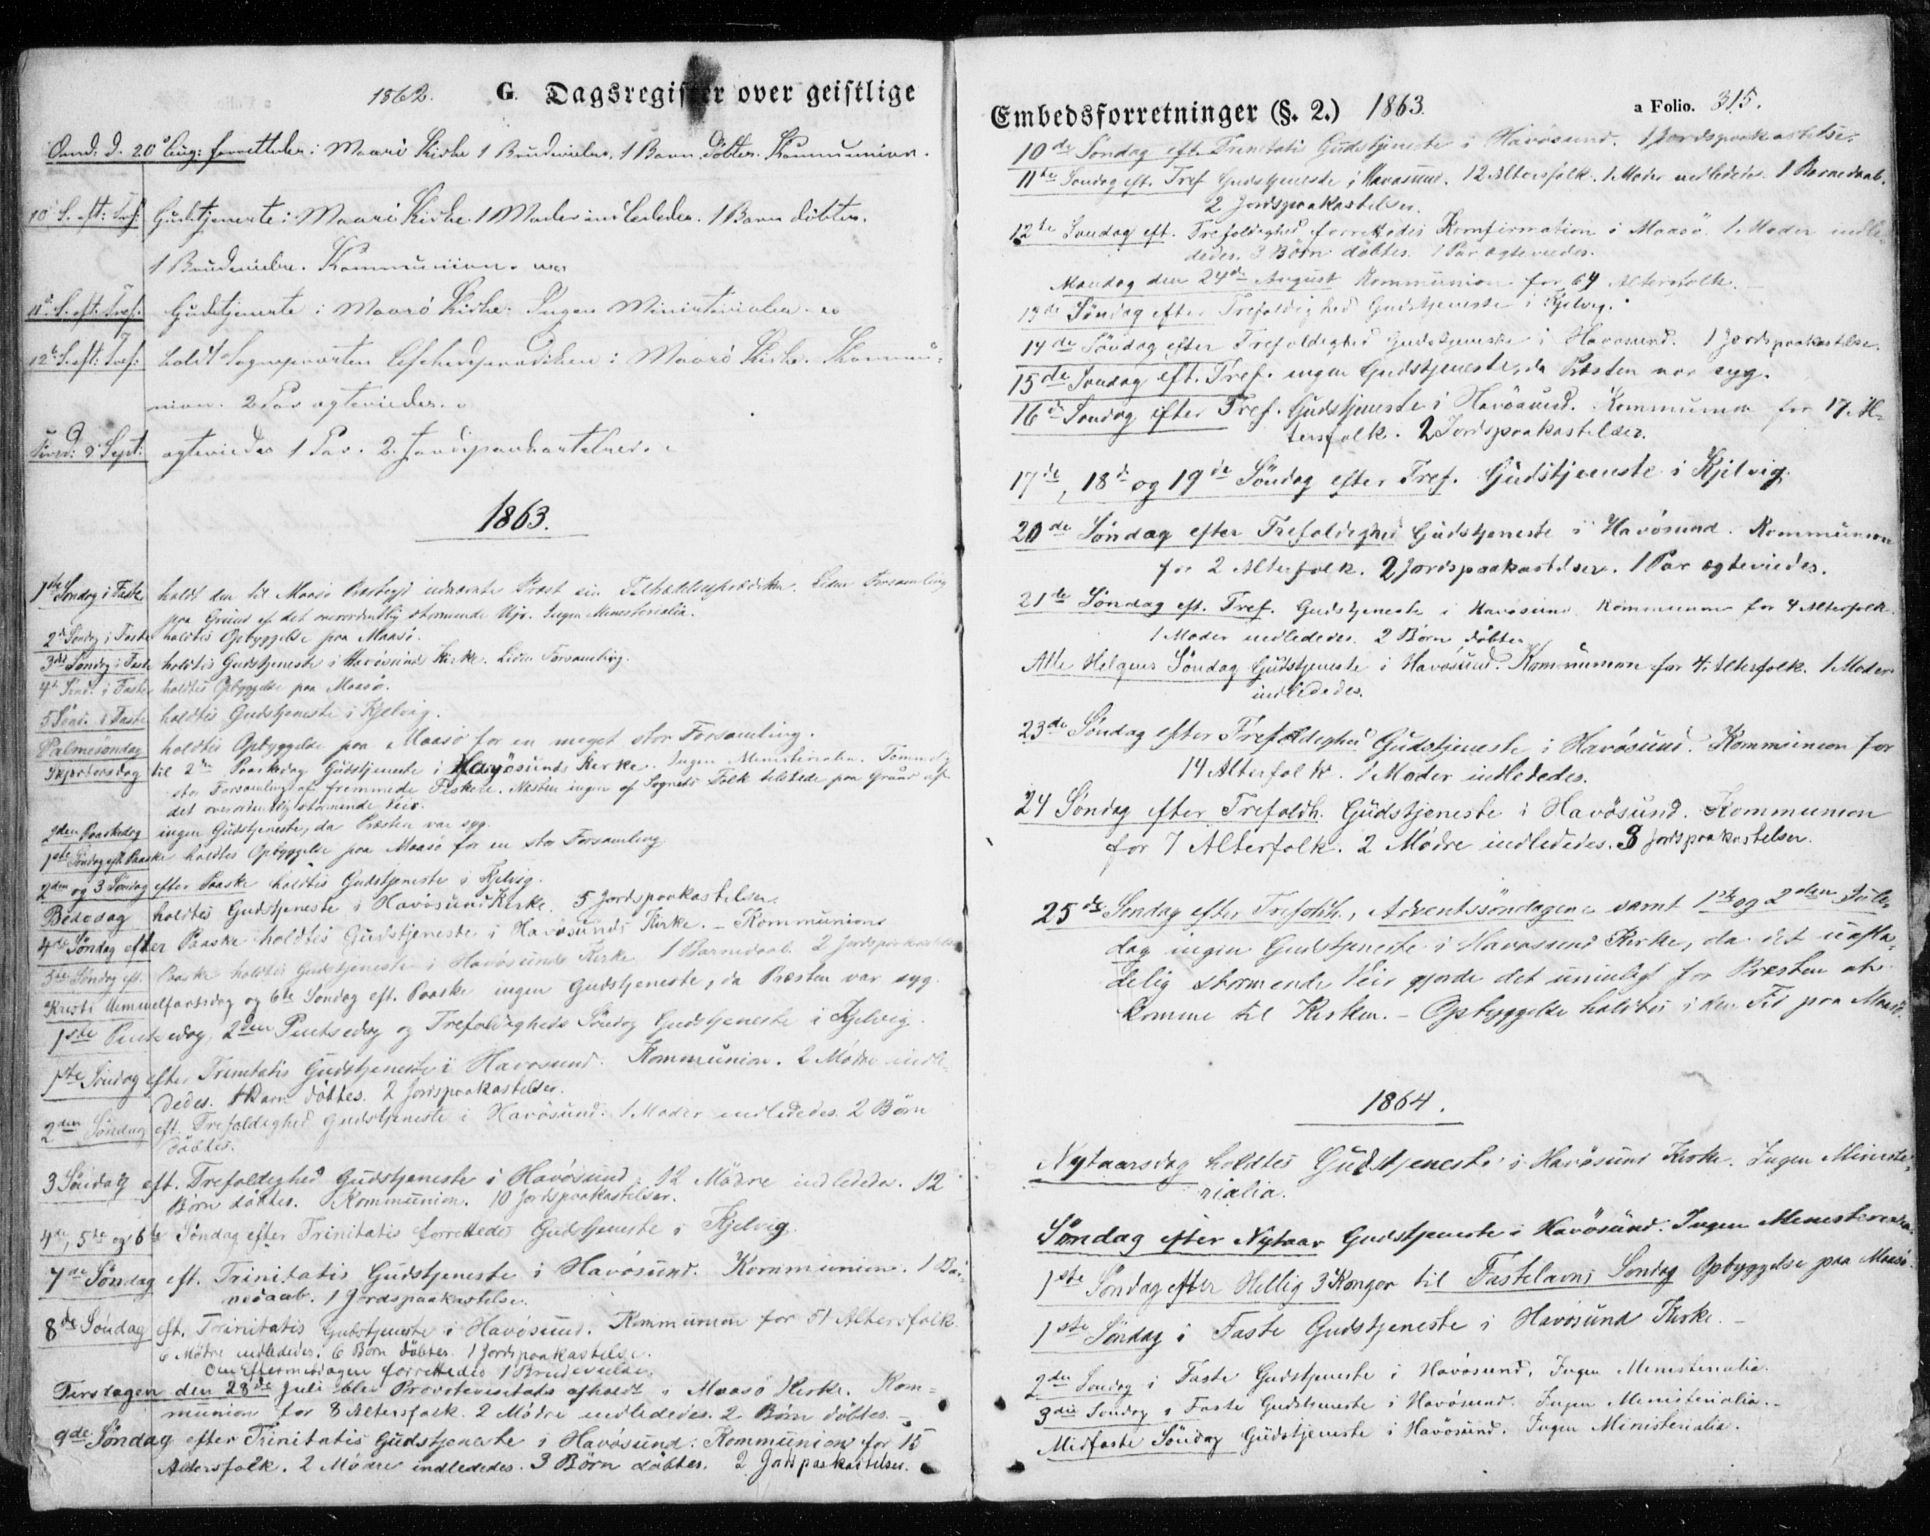 1862. G. Dagsregister over geistlige
Onsd. d. 20 Aug: forrettedes i Maasö Kirke 1 Brudevielse, 1 Barn döbtes. Kommunion.
10 S. eft: Tref: Gudstjeneste i Maasö Kirke. 1 Moder indlededes. 1 Barn döbtes.
1 Brudevielse. Kommunion.
11te S. eft. Tref: Gudstjeneste i Maasö Kirke. Ingen Ministerialer.
12te S. eft: Tref: holdt Sognepræsten Afskedsprædiken i Maasö Kirke. Kommu-
nion. 2 Par ægteviedes.
Tirsd: 2 Sept: ægteviedes 1 Par. 2 Jordspaakastelser.
1863.
1ste Søndag i Faste holdt den til Maasö Præstegj. udnævnte Præst sin Tiltrædelsesprædiken. Liden Forsamling
paa Grund af det overordentlig stormende Veir. Ingen Ministerialia.
2d Søndag i Faste holdtes Opbyggelse paa Maasö.
3die Søndag i Faste holdtes Gudstjeneste i Havösund Kirke. Liden Forsamling.
4de Sønd. i Faste holdtes Opbyggelse paa Maasö.
5 Sønd. i Faste holdtes Gudstjeneste i Kjelvig.
Palmesöndag holdtes Opbyggelse paa Maasö for en meget stor Forsamling.
Skjærtorsdag til 2den Paaskedag Gudstjeneste i Havösunds Kirke. Ingen Ministerialia. Temmelig
stor Forsamling af fremmede Fiskere. Næsten ingen af Sognets Folk tilstede paa Grund af
det overordentlig stormende Veir.
2den Paaskedag ingen Gudstjeneste, da Præsten var syg.
1ste Søndag eft. Paaske holdtes Opbyggelse paa Maasö for en stor Forsamling
2den og 3 Søndag efter Paaske holdtes Gudstjeneste i Kjelvig.
Bededag holdtes Gudstjeneste i Havösund Kirke. 5 Jordspaakastelser.
4de Søndag efter Paaske holdtes Gudstjeneste i Havösunds Kirke. – Kommunion
5te Søndag eft. Paaske holdtes Gudstjeneste i Havösunds Kirke 1 Barnedaab. 2 Jordspaakastelser
Kristi Himmelfartsdag og 6te Søndag eft. Paaske ingen Gudstjeneste, da Præsten var syg.
1ste Pintsedag, 2den Pintsedag og Trefoldigheds Søndag Gudstjeneste i Kjelvig.
1ste Søndag efter Trinitatis Gudstjeneste i Havösund. Kommunion. 2 Mödre indle-
dedes. 1 Barn döbtes. 2 Jordspaakastelser.
2den Söndag eft. Trefoldighed Gudstjeneste i Havösund. 1 Moder indlededes. 2 Börn
döbtes.
3 Söndag eft. Trefoldighed Gudstjeneste i Havösund. 12 Mödre indlededes. 12
Börn döbtes. Kommunion. 10 Jordspaakastelser.
4de, 5te og 6te Söndag efter Trinitatis forrettedes Gudstjeneste i Kjelvig.
7de Söndag eft. Trinitatis Gudstjeneste i Havösund. Kommunion. 1 Bar-
nedaab. 1 Jordspaakastelse.
8de Söndag eft. Trinitatis Gudstjeneste i Havösund. Kommunion for 51 Altersfolk
6 Mödre indlededes. 6 Börn döbtes. 1 Jordspaakastelse.
Om Eftermiddagen forrettedes 1 Brudevielse.
Tirsdagen den 28de Juli blev Provstevisitats afholdt i Maasö Kirke. Kom-
munion for 8 Altersfolk. 2 Mödre indlededes. 2 Börn döbtes. –
9de Söndag efter Trinitatis Gudstjeneste i Havösund. Kommunion for 15
Altersfolk. 2 Mödre indlededes. 3 Börn döbtes. 2 Jordspaakastelser.
Embedsforretninger (§. 2.) 1863. a Folio. 315.
10de Söndag eft. Trinitatis Gudstjeneste i Havösund. 1 Jordspaakastelse.
11te Söndag eft. Tref. Gudstjeneste i Havösund. 12 Altersfolk. 1 Moder indlededes. 1 Barnedaab.
2 Jordspaakastelser.
12te Söndag eft. Trefoldighed forrettedes Konfirmation i Maasö. 1 Moder indle-
dedes. 3 Börn döbtes. 1 Par ægteviedes.
Mandag den 24de August Kommunion for 64 Altersfolk. –
13de Söndag efter Trefoldighed Gudstjeneste i Kjelvig.
14de Söndag efter Trefoldighed Gudstjeneste i Havösund. 1 Jordspaakastelse.
15de Söndag eft. Tref. ingen Gudstjeneste, da Præsten var syg.
16de Söndag efter Tref. Gudstjeneste i Havösund. Kommunion for 17 Al-
tersfolk. 2 Jordspaakastelser.
17de, 18de og 19de Söndag efter Tref. Gudstjeneste i Kjelvig.
20de Söndag efter Trefoldighed Gudstjeneste i Havösund. Kommunion
for 2 Altersfolk. 2 Jordspaakastelser. 1 Par ægteviedes.
21de Söndag eft. Tref. Gudstjeneste i Havösund. Kommunion for 4 Altersfolk.
1 Moder indlededes. 2 Börn döbtes.
Alle Helgens Söndag Gudstjeneste i Havösund. Kommunion for 4 Altersfolk. 1 Moder
indlededes.
23de Söndag efter Trefoldighed Gudstjeneste i Havösund. Kommunion for
14 Altersfolk. 1 Moder indlededes.
24 Söndag efter Trefoldh. Gudstjeneste i Havösund. Kommunion
for 7 Altersfolk. 2 Mödre indlededes. 3 Jordspaakastelser.
25de Söndag efter Trefoldh., Adventssöndagene samt 1ste og 2den Jule-
dag ingen Gudstjeneste i Havösund Kirke, da det uafla-
delig stormende Veir gjorde det umuligt for Præsten at
komme til Kirken. – Opbyggelse holdtes i den Tid paa Maasö.
1864.
Nytaarsdag holdtes Gudstjeneste i Havösund Kirke. Ingen Ministe-
rialia.
Søndag efter Nytaar Gudstjeneste i Havösund. Ingen Ministerialia.
1ste Söndag efter Hellig 3 Konger til Fastelavns Söndag Opbyggelse paa Maasö.
1ste Söndag i Faste Gudstjeneste i Havösund Kirke. –
2den Söndag i Faste Gudstjeneste i Havösund. Ingen Ministerialia.
3die Söndag i Faste Gudstjeneste i Havösund. Ingen Ministerialia. –
Midfaste Söndag Gudstjeneste i Havösund. Ingen Ministerialia.